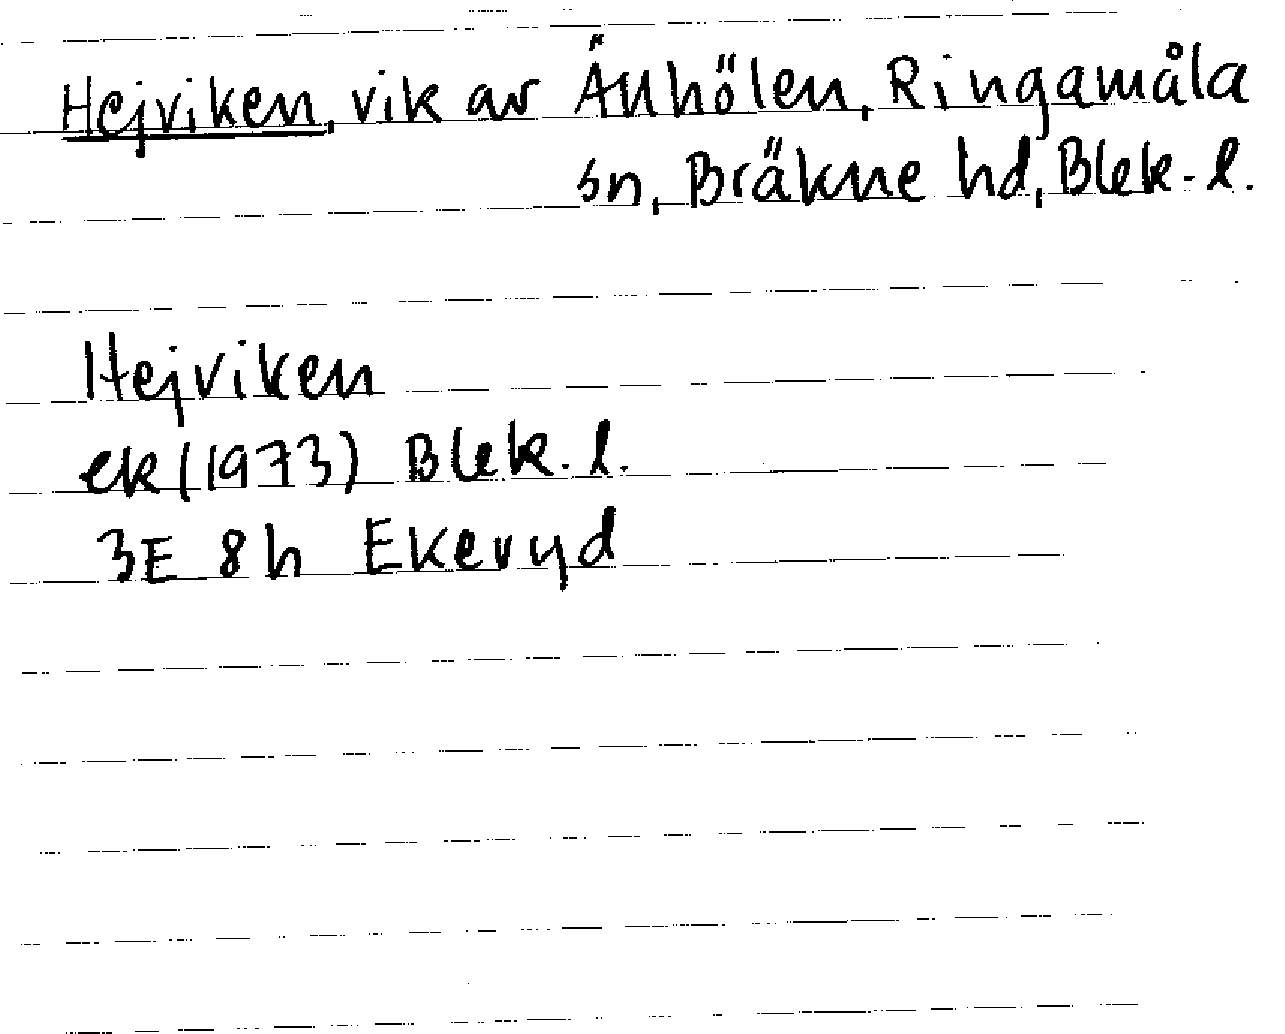 Hejviken, vik av Änhölen, Ringamåla
sn, Bräkne hd, Blek. l.
Hejviken
ek (1973) Blek. l.
3E 8h Ekeryd